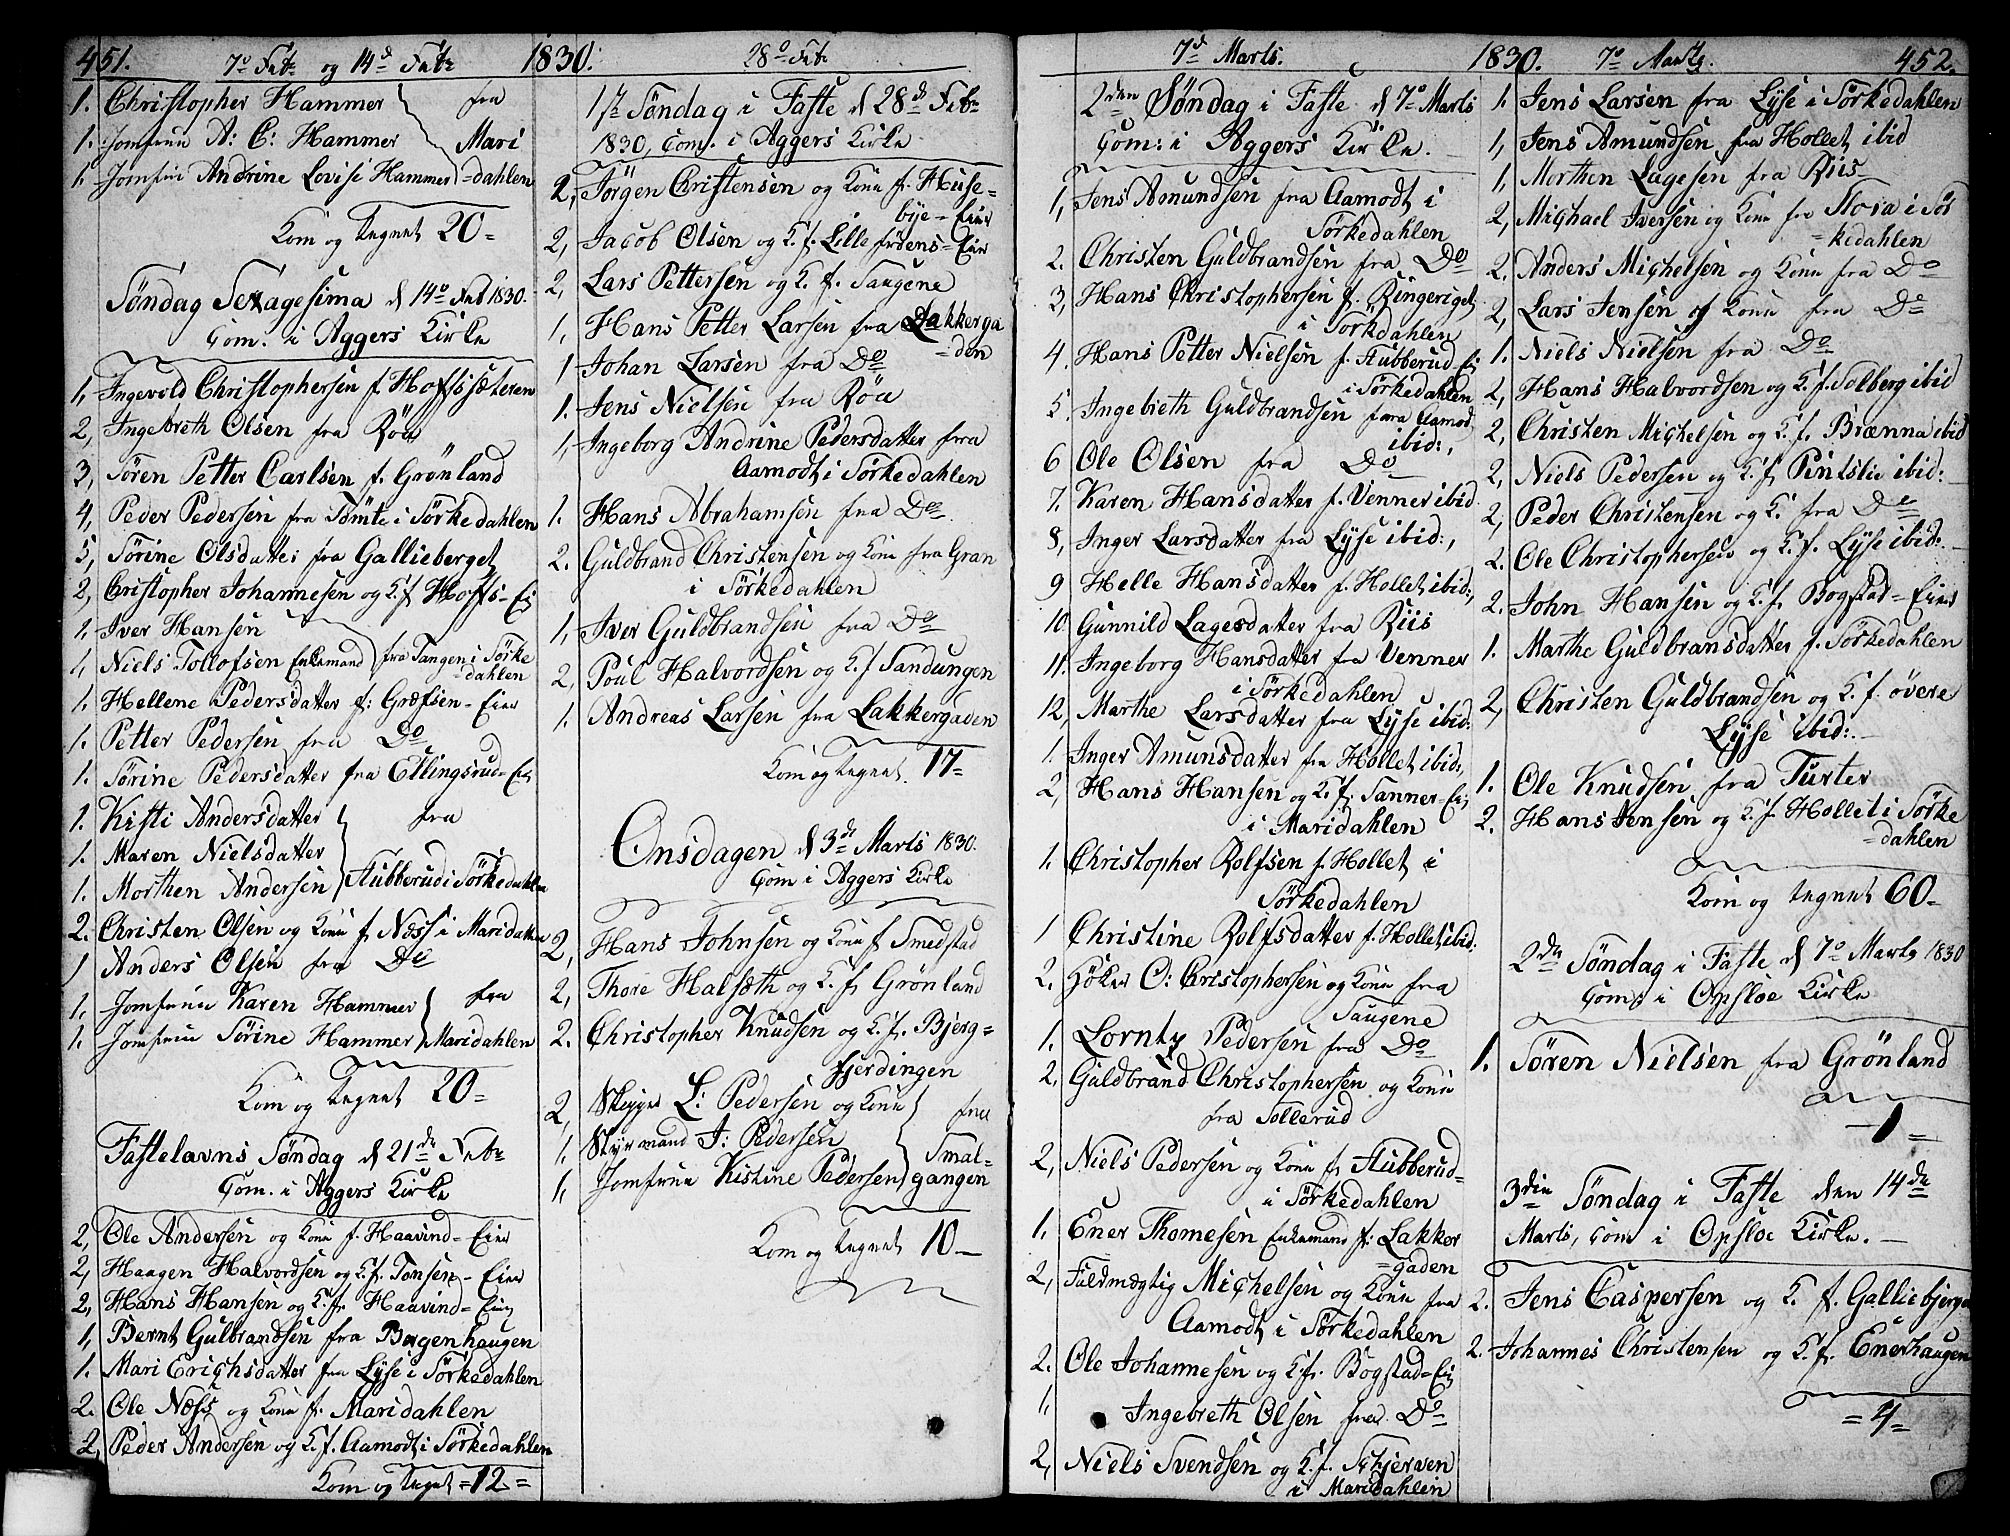 451. 7de Febr og 14de Febr 1830.
1. Christopher Hammer
1. Jomfrue A: C: Hammer
1. Jomfrue Andrine Lovise Hammer
fra
Mari
=dahlen
Kom og tegnet 20=
Søndag Sexagesima d 14de Feb 1830.
Com. i Aggers Kirke
1, Ingevold Christophersen f. Hoffssæteren
2, Ingebreth Olsen fra Röa
3, Sören Petter Carlsen f. Grönland
4, Peder Pedersen fra Tømte i Sörkedahlen
5, Sörine Olsdatter fra Gallieberget
2, Christopher Johannesen og K. f. Hoffs-Eie
1, Iver Hansen
1, Niels Tollofsen Enkemand
fra Tangen i Sörke
=dahlen
1. Hellene Pedersdatter f: Græfsen-Eier
1. Petter Pedersen fra Do
1. Sörine Pedersdatter fra Ellingsrud-Eie
1. Kisti Andersdatter
1. Maren Nielsdatter
1. Morthen Andersen
fra
Stubberud i Sörkedahlen
2. Christen Olsen og Kone f. Næss i Maridahlen
1 Anders Olsen fra Do
1. Jomfrue Karen Hammer
1. Jomfrue Sörine Hammer
fra
Maridahlen
Kom og tegnet 20=
Fastelavns Søndag d 21de Febr
Com. i Aggers Kirke
2, Ole Andersen og Kone f. Haavind-Eier
2, Haagen Halvordsen og K. f. Tonsen-Eier
2, Hans Hansen og K. f. Haavind-Eie
1, Bernt Gulbrandsen fra Borgenhaugen
1. Mari Erichsdatter fra Lyse i Sörkedahlen
2. Ole Næss og Kone f. Maridahlen
2, Peder Andersen og K. f. Aamodt i Sörkedahlen
Kom og tegnet =12=
28de Feb
1ste Söndag i Faste d 28de Feb
1830, Com. i Aggers Kirke
2, Jörgen Christensen og Kone f. Huse=
bye-Eier
2, Jacob Olsen og K. f. Lille Frøens-Eier
2, Lars Pettersen og K. f. Saugene
1, Hans Petter Larsen fra Lakkerga
=den
1 Johan Larsen fra Do
1. Jens Nielsen fra Röa
1, Ingeborg Andrine Pedersdatter fra
Aamodt i Sörkedahlen
1. Hans Abrahamsen fra Do
2. Guldbrand Christensen og Kone fra Gran
i Sörkedahlen
1, Iver Guldbrandsen fra Do
2, Poul Halvordsen og K. f. Sandungen
1. Andreas Larsen fra Lakkergaden
Kom og tegnet. 17=
Onsdagen d 3de Marts 1830.
Com i Aggers Kirke
2, Hans Johnsen og Kone f. Smedstad
2, Thore Halsæth og K. f. Grönland
2. Christopher Knudsen og K. f. Bjerg=
fjerdingen
2, Skipper L: Pedersen og Kone
1, Styrmand J: Pedersen
1, Jomfrue Kistine Pedersen
fra
Smal=
gangen
Kom og tegnet 10—
7de Marts. 1830. 7de Marts. 452.
2den Søndag i Faste d 7de Marts
Com: i Aggers Kirke.
1, Jens Amundsen fra Aamodt i
Sörkedahlen
2. Christen Guldbrandsen fra Do
3, Hans Christophersen f. Ringeriget
i Sörkedahlen
4. Hans Petter Nielsen f. Stubberud Eie
i Sörkedahlen
5. Ingebreth Guldbrandsen fra Aamod
ibid:,
6 Ole Olsen fra Do
7. Karen Hansdatter f. Venner ibid
8, Inger Larsdatter fra Lyse ibid:,
9 Helle Hansdatter f. Hollet ibid:,
10. Gunnild Lagesdatter fra Riis
11. Ingeborg Hansdatter fra Venner
i Sörkedahlen
12, Marthe Larsdatter fra Lyse ibid:
1. Inger Amunsdatter fra Hollet ibid:,
2, Hans Hansen og K. f. Sanner-Eie
i Maridahlen
1. Christopher Rolfsen f. Hollet i
Sörkedahlen
1 Christine Rolfsdatter f. Hollet ibid:
2. Höker O: Christophersen og Kone fra
Saugene
1. Lorntz Pedersen fra Do
2, Guldbrand Christophersen og Kone
fra Sollerud
2, Niels Pedersen og Kone f. Stubberud-
i Sörkedahlen
1. Ener Thomesen Enkemand f. Lakker
=gaden
2, Fuldmægtig Michelsen og Kone fra
Aamodt i Sörkedahlen
2. Ole Johannesen og K. f. Bogstad-Eie
1, Ingebreth Olsen fra Do
2, Niels Svendsen og K. f. Skjerven
i Maridahlen
1. Jens Larsen fra Lyse i Sörkedahlen
1, Jens Amundsen fra Hollet ibid
1, Morthen Lagesen fra Riis
2, Michael Iversen og Kone fra Flosa i Sör
=kedahlen
2. Anders Michelsen og Kone fra Do
2, Lars Jensen og Kone fra Do
1. Niels Nielsen fra Do
2, Hans Halvordsen og K. f. Solberg ibid
2, Christen Michelsen og K. f. Brænna ibid
2, Niels Pedersen og K. f. Pintslie ibid:
2, Peder Christensen og K. fra Do
2. Ole Christophersen og K. f. Lyse ibid:
2. John Hansen og K. f. Bogstad-Eier
1. Marthe Guldbransdatter f. Sörkedahlen
2, Christen Guldbrandsen og K. f. øvere
Lyse ibid:
1. Ole Knudsen fra Turter
2. Hans Jensen og K. f. Hollet i Sörke
=dahlen
Kom og tegnet 60=
2den Söndag i Faste d 7de Marts 1830
Com: i Opsloe Kirke
1. Sören Nielsen fra Grönland
—1=
3die Söndag i Faste den 14de
Marts, Com i Opsloe Kirke.
2. Jens Caspersen og K. f. Galliebjerge
2. Johannes Christensen og K. f. Enerhaugen
=4=